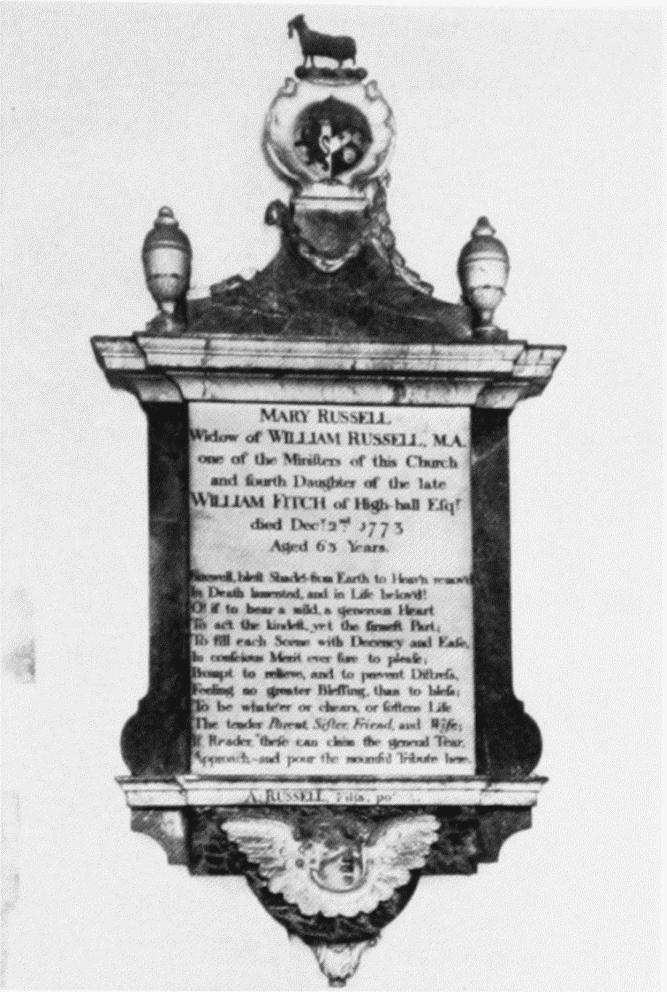 MARY RUSSELL
Widow of WILLIAM RUSSELL, M.A.
one of the Miniſters of this Church
and fourth Daughter of the late
WILLIAM FITCH of High-hall Eſqr
died Decr. 2nd 1773
Aged 63 Years.
bleſt Shade! from Earth to Heav'n remov'd
In Death lamented, and in Life belov'd!
O! if to bear a mild, a generous Heart
To act the kindeſt, yet the firmeſt Part;
To fill each Scene with Decency and Eaſe,
In conſcious Merit ever ſure to pleaſe;
Prompt to relieve, and to prevent Diſtreſs,
Feeling no greater Bleſſing, than to bleſs;
To be whate'er or chears, or ſoftens Life
The tender Parent, Siſter, Friend, and Wife;
If Reader, theſe can claim the general Tear,
Approach—and pour the mournful Tribute here.
A. RUSSELL,